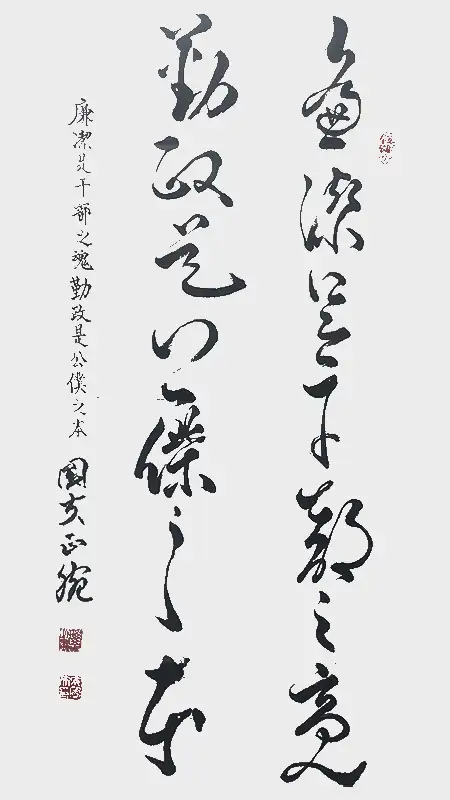 廉潔是干部之魂
勤政是公僕之本
廉潔是干部之魂勤政是公僕之本
國友正腕